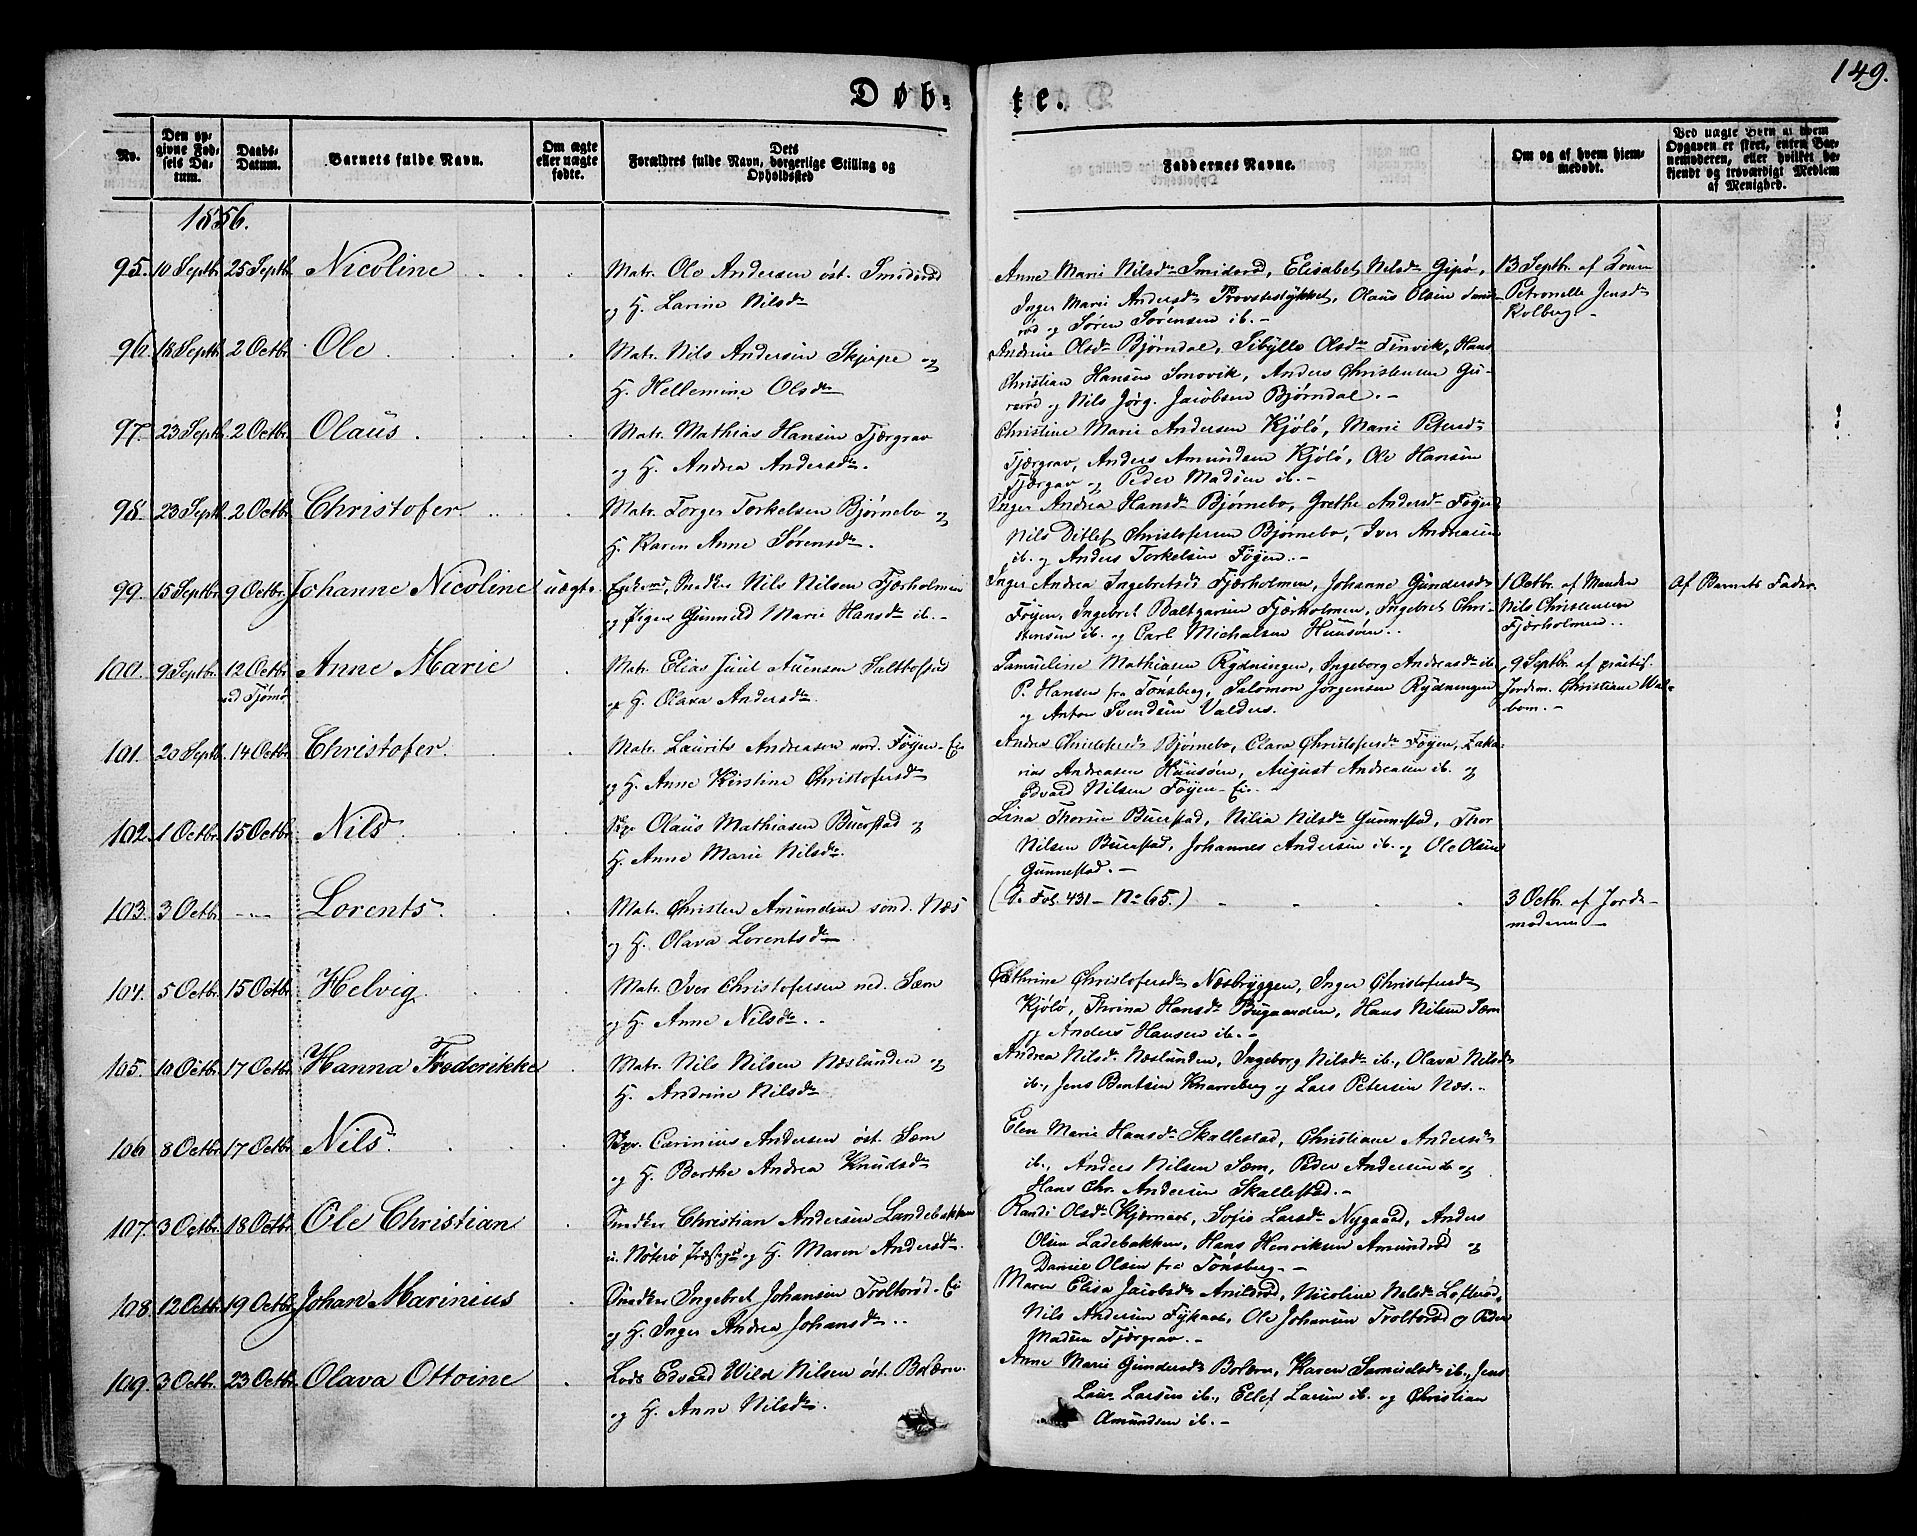 Døb-te.
149.
No.
Den opgivne Fødsels Datum.
Daabs-Datum.
Barnets fulde Navn.
Om ægte eller uægte fødte.
Dets Forældres fulde Navn, borgerlige Stilling og Opholdssted
Faddernes Navne.
Om og af hvem hjemmedøbt.
Ved uægte Børn af hvem Opgaven er skeet, enten Barnemoderen, eller hvilket bekjendt og troværdigt Medlem af Menighed.
1856.
95. 10 Septbr. 25 Septbr. Nicoline
Matr. Ole Andersen øst. Smiderød
og H. Larine Nilsdr
Anne Marie Nilsdr Smiderød, Elisabet Nilsdr Gipø,
Inger Marie Andersdr Provstestykket, Olaus Olsen Smide-
rød og Søren Sørensen ib. -
13 Septbr. af Konen
Petronelle Jensdr
Kolberg -
96. 18 Septbr. 2 Octbr. Ole
Matr. Nils Andersen Skjerpe og
H. Hellemine Olsdr
Andrine Olsdr Bjørndal, Sibylle Olsdr Finvik, Hans
Christian Hansen Smovik, Anders Christensen Gu-
rerød og Nils Jørg. Jacobsen Bjørndal. -
97. 23 Septbr. 2 Octbr. Olaus
Matr. Mathias Hansen Tjærgrav
og H. Andrea Andersdr.
Christine Marie Andersen Kjøló, Marie Petersdr
Tjærgrav, Anders Amundsen Kjøló, Ole Hansen
Tjærgrav og Peder Madsen ib. -
98. 23 Septbr. 2 Octbr. Christofer
Matr. Torger Torkelsen Bjørnebo og
H. Karen Anne Sørensdr.
Inger Andrea Hansdr Bjørnebo, Grethe Andersdr Føyen
Nils Ditlef Christofersen Bjørnebo, Iver Andreasen
ib. og Anders Torkelsen Føyen. -
99. 15 Septbr. 9 Octbr. Johanne Nicoline uægte
Enkemd, Snedker Nils Nilsen Fjærholmen
og Pigen Gunnild Marie Hansdr ib. -
Inger Andrea Ingebretsdr Fjærholmen, Johanne Gundersdr
Føyen, Ingebret Baltzarsen Fjærholmen, Ingebret Chri-
stensen ib. og Carl Michalsen Huusøen.
1 Octbr. af Manden
Nils Christensen
Fjærholmen.
Af Barnets Fader.
100. 9 Septbr. 12 Octbr. Anne Marie
ved Tjømø
Matr. Elias Juul Auensen
og H. Olava Andersdr.
Samueline Mathiasen Rydningen, Ingeborg Andreasdr ib.
P. Hansen fra Tønsberg, Salomon Jørgensen Rydningen
og Anton Svendsen Valders.
9 Septbr. af practis.
Jordem. Christiane Wal-
bom. -
101. 20 Septbr. 14 Octbr. Christofer
Matr. Laurits Andreasen nord. Føyen-Ei
og H. Anne Kirstine Christofersdr
Andrea Christofersdr Bjørnebo, Clara Christofersdr Føyen, Zaka-
rias Andreasen Huusøen, August Andreasen ib. og
Edvard Nilsen Føyen-Ei. -
102. 1 Octbr. 15 Octbr. Nils
Olaus Mathiasen Buerstad og
H. Anne Marie Nilsdr.
Lina Thorine Buerstad, Nilia Nilsdr Gunnestad, Thor
Nilsen Buerstad, Johannes Andersen ib. og Ole Olsen
Gunnestad. -
103. 3 Octbr. - Lorents
Matr. Christen Amundsen sond. Næs
og H. Olava Lorentsdr
(S. Fol. 431 - No 65.)
3 Octbr. af Jorde-
moderen -
104. 5 Octbr. 15 Octbr. Helvig
Matr. Iver Christofersen ned. Sæm
og H. Anne Nilsdr.
Cathrine Christofersdr Næsbryggen, Inger Christofersdr
Kjøló, Thrina Hansdr Bugaarden, Hans Nilsen Sæm
og Anders Hansen ib. -
105. 10 Octbr. 17 Octbr. Hanna Frederikke
Matr. Nils Nilsen Næslunden og
H. Andrine Nilsdr
Andrea Nilsdr Næslunden, Ingeborg Nilsdr ib., Olava Nilsdr
ib., Jens Bentsen Knarreberg og Lars Petersen Næs. -
106 8 Octbr. 17 Octbr. Nils
Carinius Andersen øst. Sæm
og H. Berthe Andrea Knudsdr
Elen Marie Hansdr Skallestad, Christiane Andersdr
ib., Anders Nilsen Sæm, Peder Andersen ib og
Hans Chr. Andersen Skallestad. -
107. 3 Octbr. 18 Octbr. Ole Christian
Snedker Christian Andersen Landebakken
i Nøterø Præstegd og H. Maren Andersdr.
Randi Olsdr Kjærnaas, Sofie Larsdr Nygaard, Anders
Olsen Ladebakken, Hans Henriksen Amundrød og
Daniel Olsen fra Tønsberg. -
108. 12 Octbr. 19 Octbr. Johan Marinius
Snedker Ingebret Johansen Troltorød-Ei
og H. Inger Andrea Johansdr.
Maren Elisa Jacobsdr Arildrød, Nicoline Nilsdr Lofterød,
Nils Andersen Fykaas, Ole Johansen Troltorød og Peder
Madsen Tjærgrav. -
109. 3 Octbr. 23 Octbr. Olava Ottoine
Lods Edvard Wild Nilsen øst. Bolærn
og H. Anne Nilsdr.
Anne Marie Gundersdr Bolærn, Karen Samuelsdr ib., Jens
Laur. Larsen ib., Ellef Larsen ib. og Christian
Amundsen ib. -